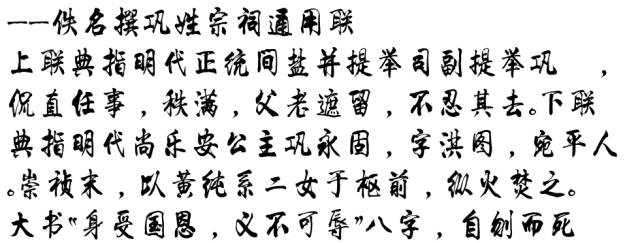 ——佚名撰巩姓宗祠通用联
上联典指明代正统间盐井提举司副提举巩　，
侃直任事，秩满，父老遮留，不忍其去。下联
典指明代尚乐安公主巩永固，字洪图，宛平人
。崇祯末，以黄绳系二女于柩前，纵火焚之。
大书“身受国恩，义不可辱”八字，自刎而死